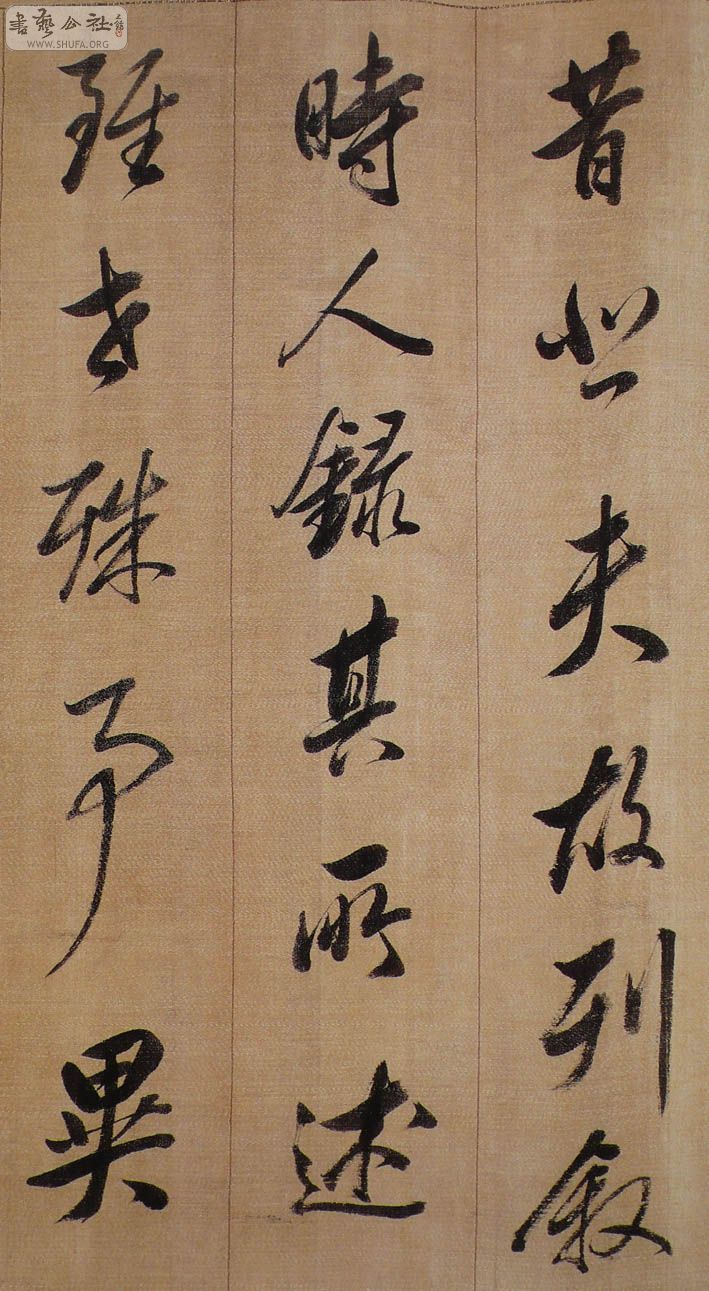 書藝公社
WWW.SHUFA.ORG
昔悲夫故列叙
時人録其所述
雖世殊事異